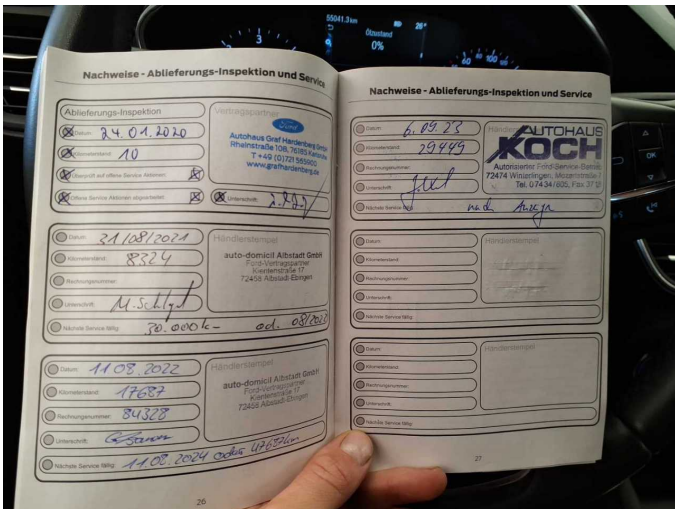 55041.3 km 26°
Ölzustand
0%
3
60 80 100
OK
Nachweise - Ablieferungs-Inspektion und Service
Ablieferungs-Inspektion
Datum: 24.01.2020
Kilometerstand: 10
Überprüft auf offene Service Aktionen:
Offene Service Aktionen abgearbeitet:
Vertragspartner
Ford
Autohaus Graf Hardenberg GmbH
Rheinstraße 108, 76185 Karlsruhe
T +49 (0)721 563900
www.grafhardenberg.de
Unterschrift:
Datum: 31/08/2021
Kilometerstand: 8324
Rechnungsnummer:
Unterschrift: M. Schlgel
Nächste Service fällig: 30.000 k- od. 08/2023
Händlerstempel
auto-domicil Albstadt GmbH
Ford-Vertragspartner
Kientenstraße 17
72458 Albstadt-Ebingen
Datum: 11.08.2022
Kilometerstand: 17687
Rechnungsnummer: 84328
Unterschrift:
Nächste Service fällig: 11.08.2024 oder 47687km
Händlerstempel
auto-domicil Albstadt GmbH
Ford-Vertragspartner
Kientenstraße 17
72458 Albstadt-Ebingen
26
Nachweise - Ablieferungs-Inspektion und Service
Datum: 6.09.23
Kilometerstand: 29449
Rechnungsnummer:
Unterschrift:
Nächste Service fällig: nach Anzeige
AUTOHAUS
KOCH
Autorisierter Ford-Service-Betrieb
72474 Winterlingen, Mozartstraße
Tel. 07434/605, Fax
Datum:
Kilometerstand:
Rechnungsnummer:
Unterschrift:
Nächste Service fällig:
Händlerstempel
Datum:
Kilometerstand:
Rechnungsnummer:
Unterschrift:
Nächste Service fällig:
Händlerstempel
27